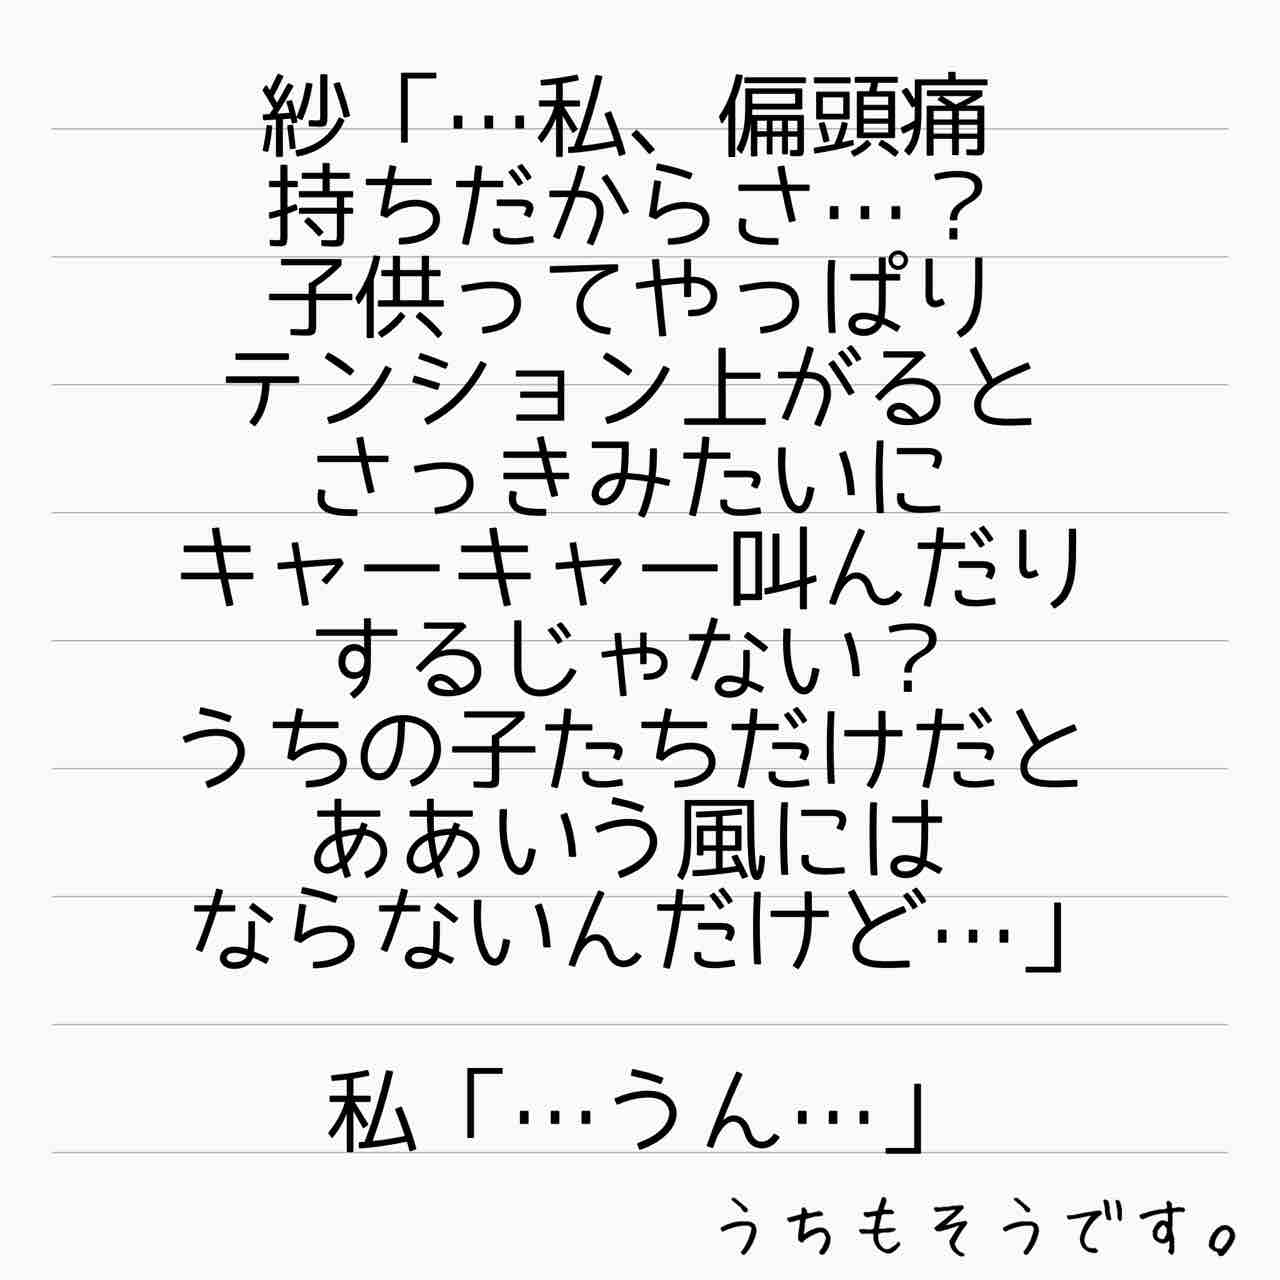 紗「…私、偏頭痛
持ちだからさ…？
子供ってやっぱり
テンション上がると
さっきみたいに
キャーキャー叫んだり
するじゃない？
うちの子たちだけだと
ああいう風には
ならないんだけど…」
私「…うん…」
うちもそうです。